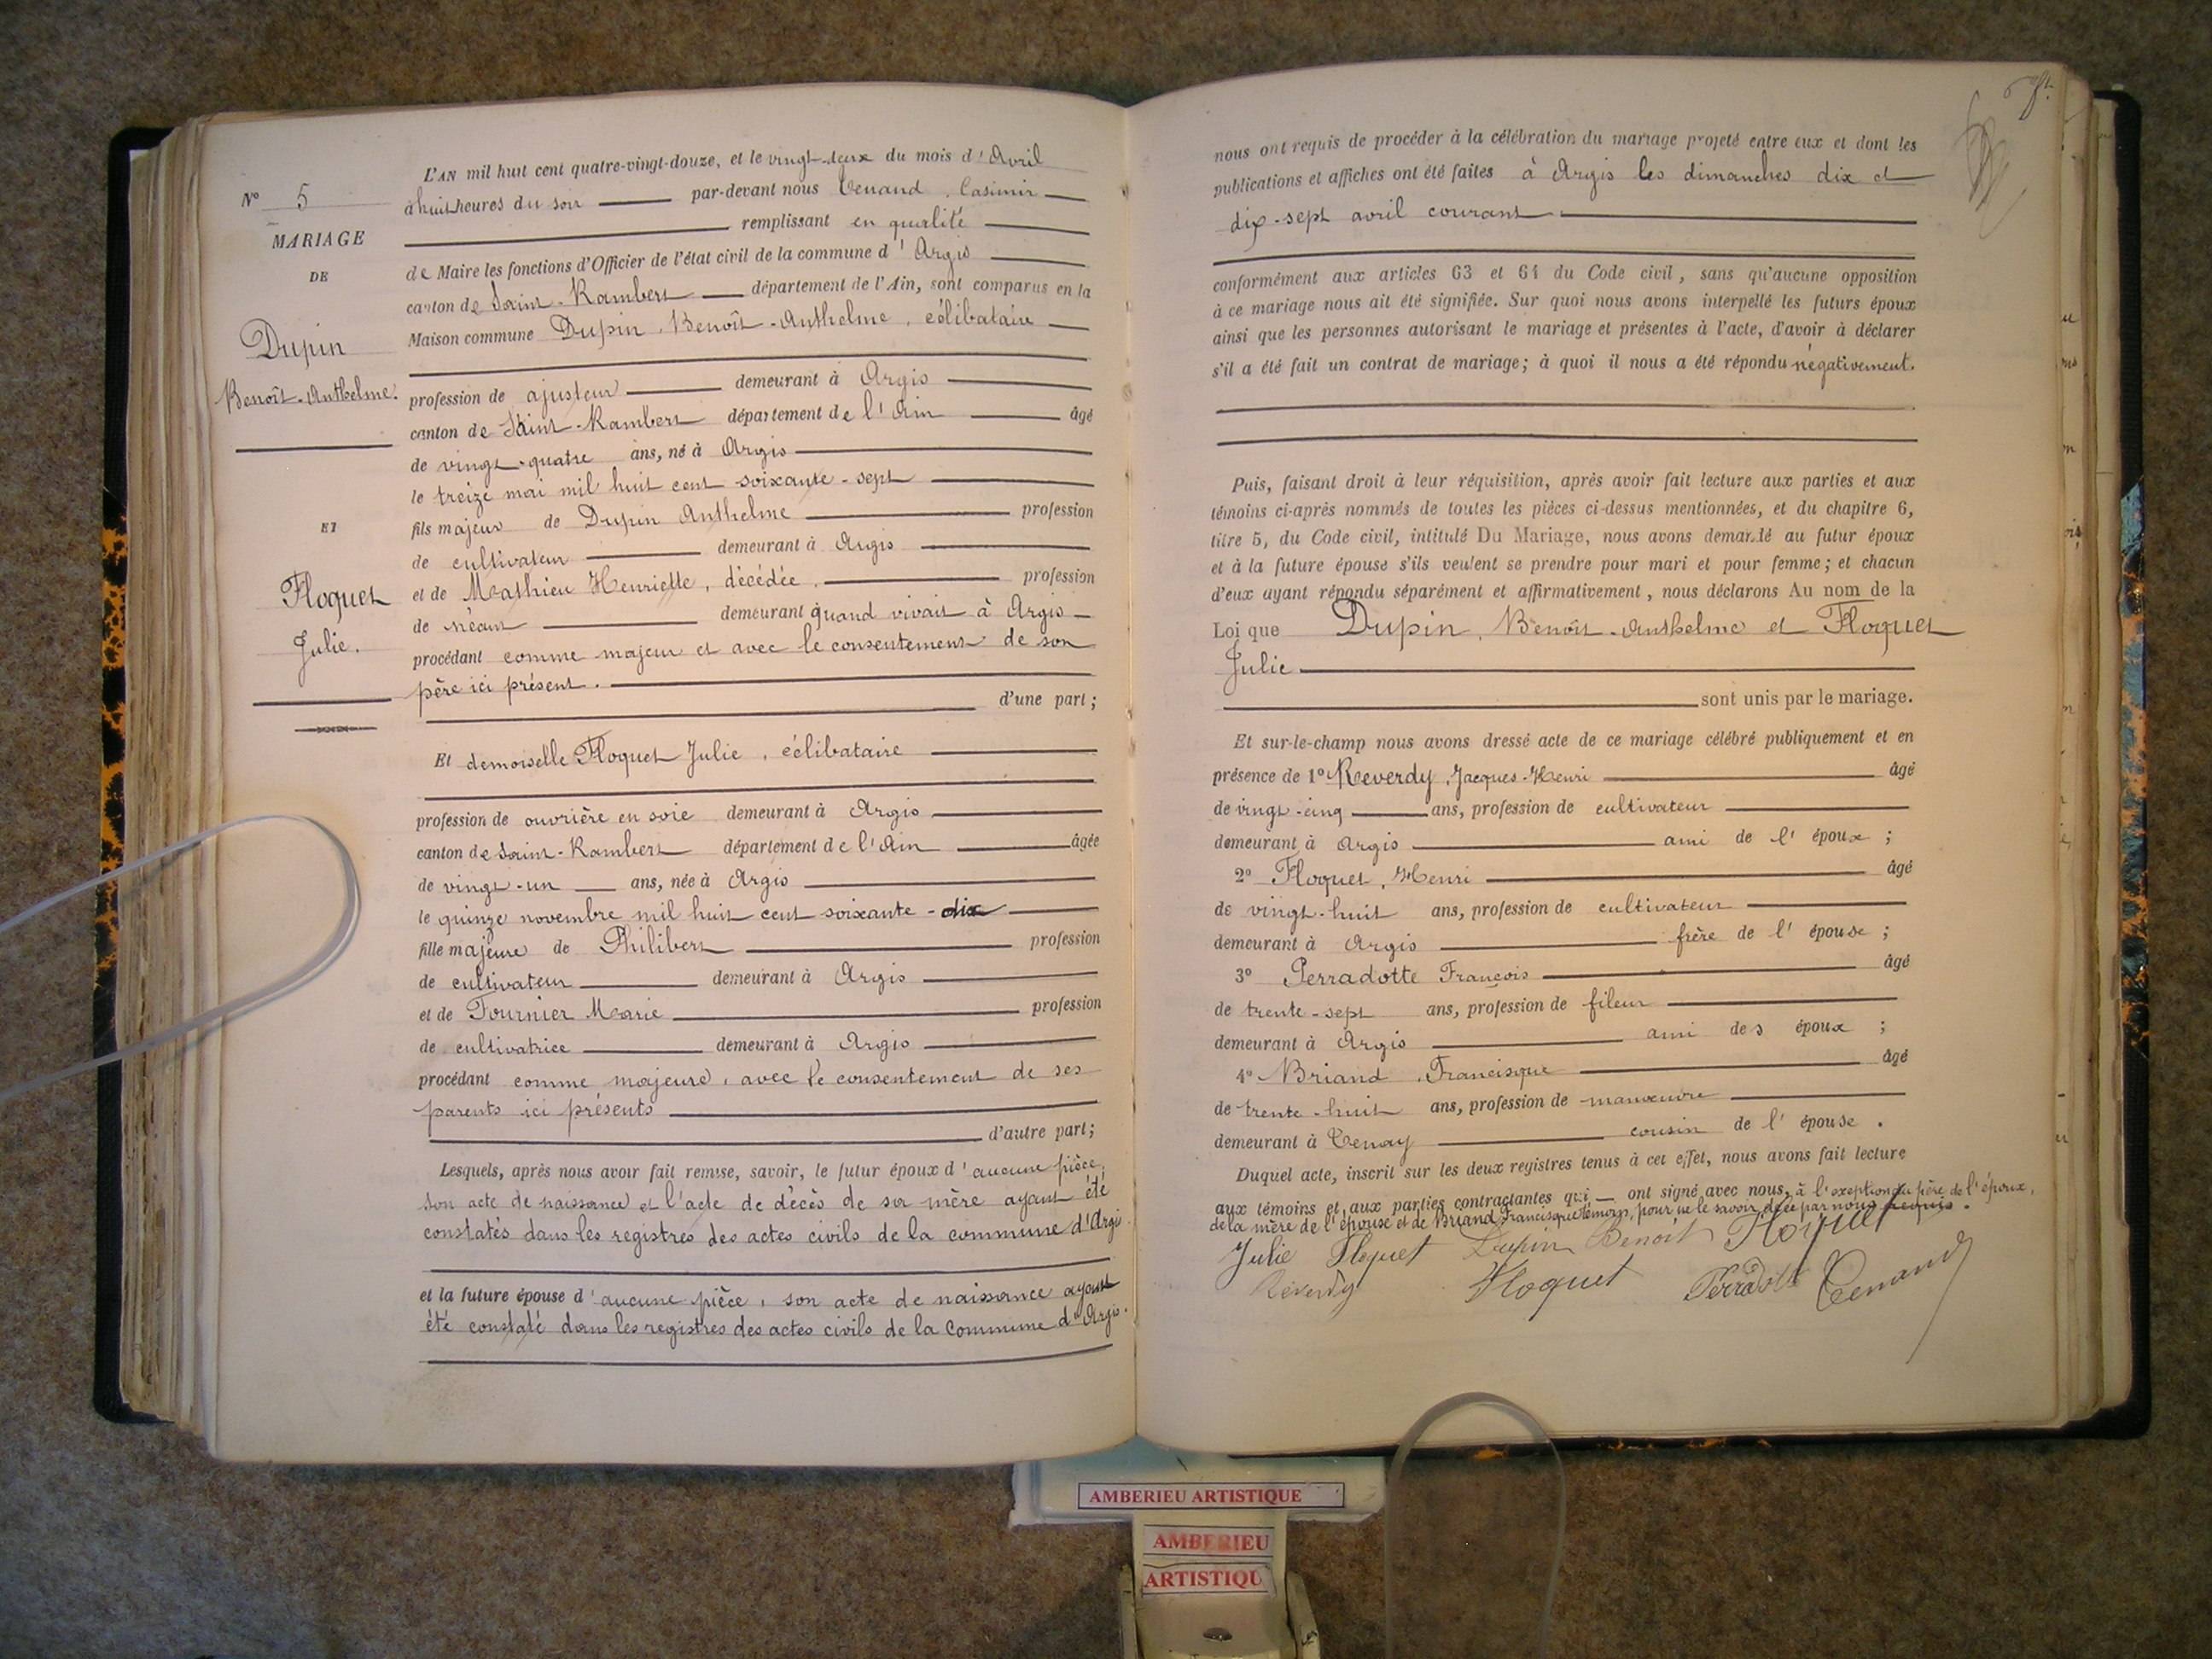 N° 5
MARIAGE
DE
Dupin
Benoît-Anthelme.
ET
Floquet
Julie.
L'AN mil huit cent quatre-vingt-douze, et le vingt-deux du mois d'Avril
à huit heures du soir par-devant nous Tenand, Casimir
remplissant en qualité
de Maire les fonctions d'Officier de l'état civil de la commune d'Argis
canton de Saint-Rambert département de l'Ain, sont comparus en la
Maison commune Dupin, Benoît-Anthelme, célibataire
profession de ajusteur demeurant à Argis
canton de Saint-Rambert département de l'Ain âgé
de vingt-quatre ans, né à Argis
le treize mai mil huit cent soixante-sept
fils majeur de Dupin Anthelme profession
de cultivateur demeurant à Argis
et de Mathieu Henriette, décédée, profession
de néant demeurant quand vivait à Argis
procédant comme majeur et avec le consentement de son
père ici présent.
d'une part;
Et demoiselle Floquet Julie, célibataire
profession de ouvrière en soie demeurant à Argis
canton de Saint-Rambert département de l'Ain âgée
de vingt-un ans, née à Argis
le quinze novembre mil huit cent soixante-dix
fille majeure de Philibert profession
de cultivateur demeurant à Argis
et de Fournier Marie profession
de cultivatrice demeurant à Argis
procédant comme majeure, avec le consentement de ses
parents ici présents
d'autre part;
Lesquels, après nous avoir fait remise, savoir, le futur époux d'aucune pièce,
son acte de naissance et l'acte de décès de sa mère ayant été
constatés dans les registres des actes civils de la commune d'Argis
et la future épouse d'aucune pièce, son acte de naissance ayant
été constaté dans les registres des actes civils de la commune d'Argis.
nous ont requis de procéder à la célébration du mariage projeté entre eux et dont les
publications et affiches ont été faites à Argis les dimanches dix et
dix-sept avril courant
conformément aux articles 63 et 64 du Code civil, sans qu'aucune opposition
à ce mariage nous ait été signifiée. Sur quoi nous avons interpellé les futurs époux
ainsi que les personnes autorisant le mariage et présentes à l'acte, d'avoir à déclarer
s'il a été fait un contrat de mariage; à quoi il nous a été répondu négativement.
Puis, faisant droit à leur réquisition, après avoir fait lecture aux parties et aux
témoins ci-après nommés de toutes les pièces ci-dessus mentionnées, et du chapitre 6,
titre 5, du Code civil, intitulé Du Mariage, nous avons demandé au futur époux
et à la future épouse s'ils veulent se prendre pour mari et pour femme; et chacun
d'eux ayant répondu séparément et affirmativement, nous déclarons Au nom de la
Loi que Dupin, Benoît-Anthelme et Floquet
Julie
sont unis par le mariage.
Et sur-le-champ nous avons dressé acte de ce mariage célébré publiquement et en
présence de 1° Reverdy, Jacques-Henri âgé
de vingt-cinq ans, profession de cultivateur
demeurant à Argis ami de l'époux;
2° Floquet, Henri âgé
de vingt-huit ans, profession de cultivateur
demeurant à Argis frère de l'épouse;
3° Perradotte François âgé
de trente-sept ans, profession de fileur
demeurant à Argis ami des époux;
4° Briand, Francisque âgé
de trente-huit ans, profession de manœuvre
demeurant à Tenay cousin de l'épouse.
Duquel acte, inscrit sur les deux registres tenus à cet effet, nous avons fait lecture
aux témoins et aux parties contractantes qui ont signé avec nous, à l'exeption du père de l'époux,
de la mère de l'épouse et de Briand Francisque témoin, pour ne le savoir, de ce par nous requis.
Julie Floquet Dupin Benoit Floquet
Reverdy Floquet Perradotte Tenand
AMBERIEU ARTISTIQUE
AMBERIEU
ARTISTIQU